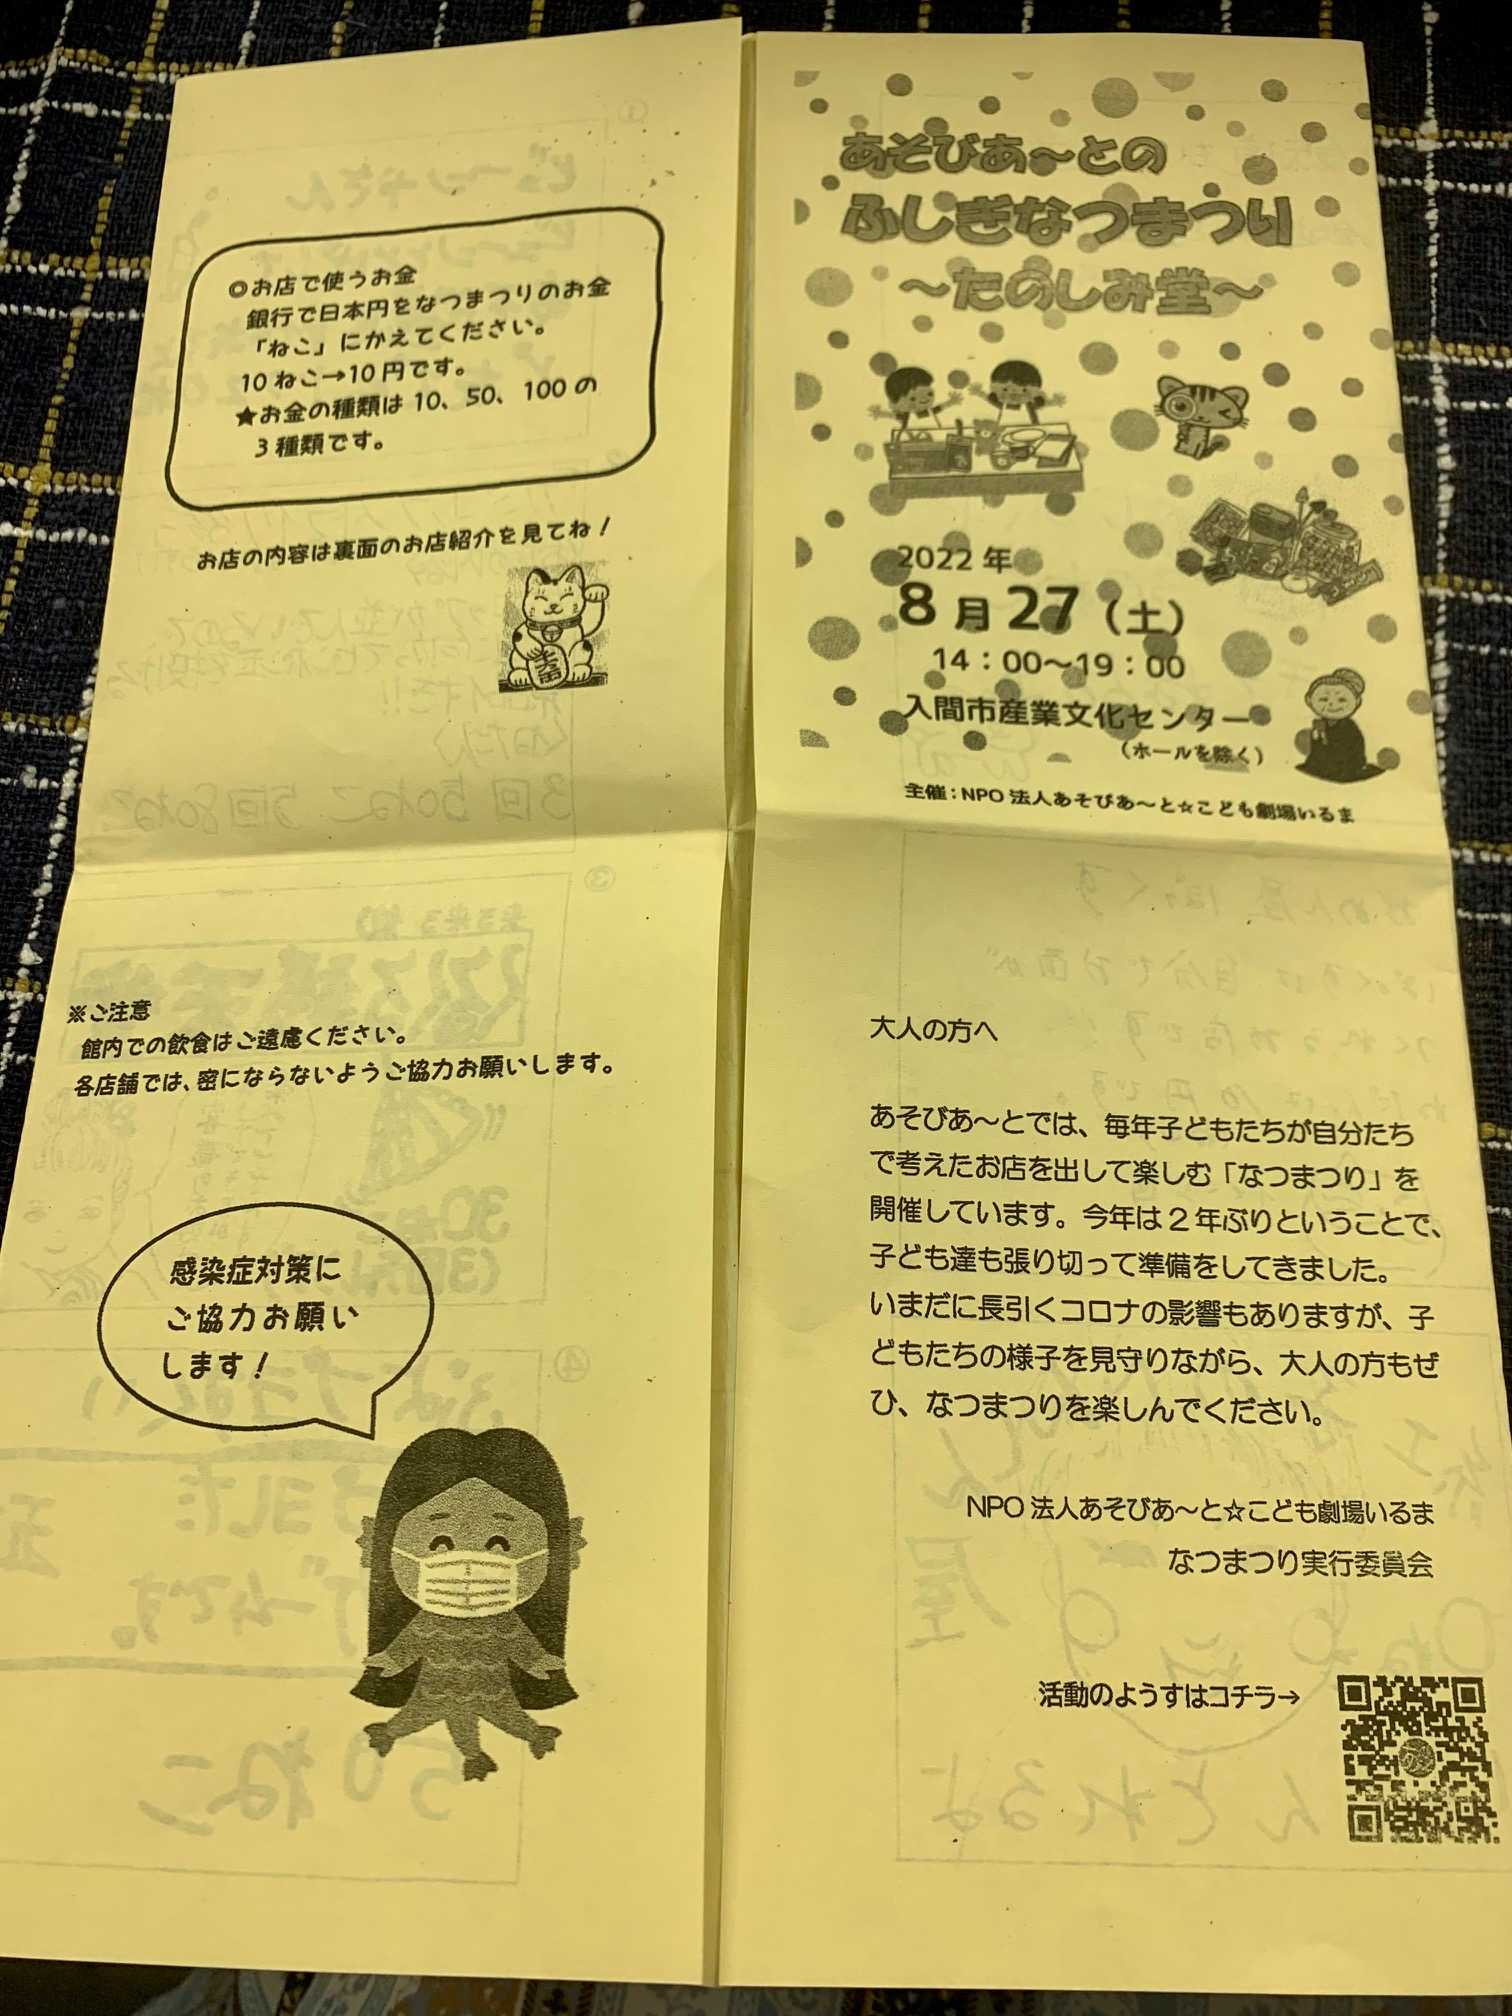 あそびあ〜との
ふしぎなつまつり
〜たのしみ堂〜
2022年
8月27（土）
14：00〜19：00
入間市産業文化センター
（ホールを除く）
主催：NPO法人あそびあ〜と☆こども劇場いるま
◎お店で使うお金
銀行で日本円をなつまつりのお金
「ねこ」にかえてください。
10ねこ→10円です。
★お金の種類は10、50、100の
3種類です。
お店の内容は裏面のお店紹介を見てね！
※ご注意
館内での飲食はご遠慮ください。
各店舗では、密にならないようご協力お願いします。
感染症対策に
ご協力お願い
します！
大人の方へ
あそびあ〜とでは、毎年子どもたちが自分たち
で考えたお店を出して楽しむ「なつまつり」を
開催しています。今年は2年ぶりということで、
子ども達も張り切って準備をしてきました。
いまだに長引くコロナの影響もありますが、子
どもたちの様子を見守りながら、大人の方もぜ
ひ、なつまつりを楽しんでください。
NPO法人あそびあ〜と☆こども劇場いるま
なつまつり実行委員会
活動のようすはコチラ→